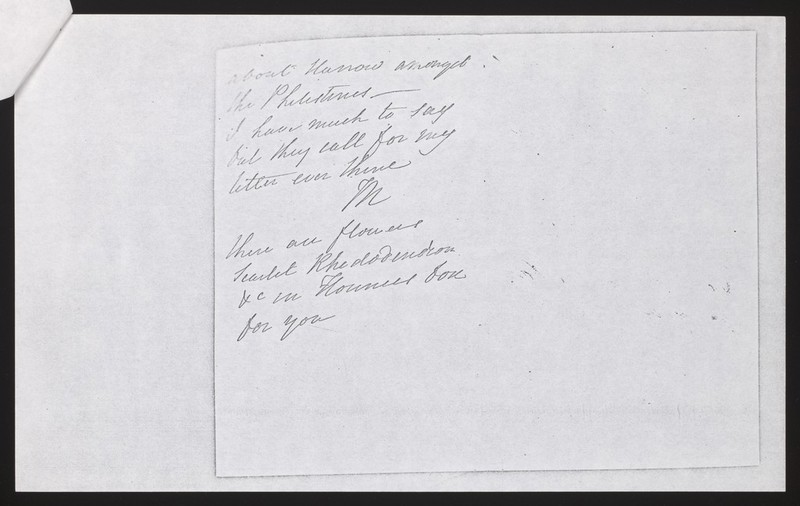 about Harrow amongst
the Philistines —
I have much to say
but they call for my
letter ever thine
M
there are flowers
Scarlet Rhododendron
&c in Flounces box
for you